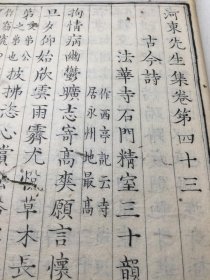 河東先生集卷第四十三
古今詩
法華寺石門精室三十韻
作西亭龍云寺
居永州地最高
拘情病幽鬱曠志寄高爽願言懷
旦夕仰始欣雲雨霽尤悅草木長
披拂恣心賞